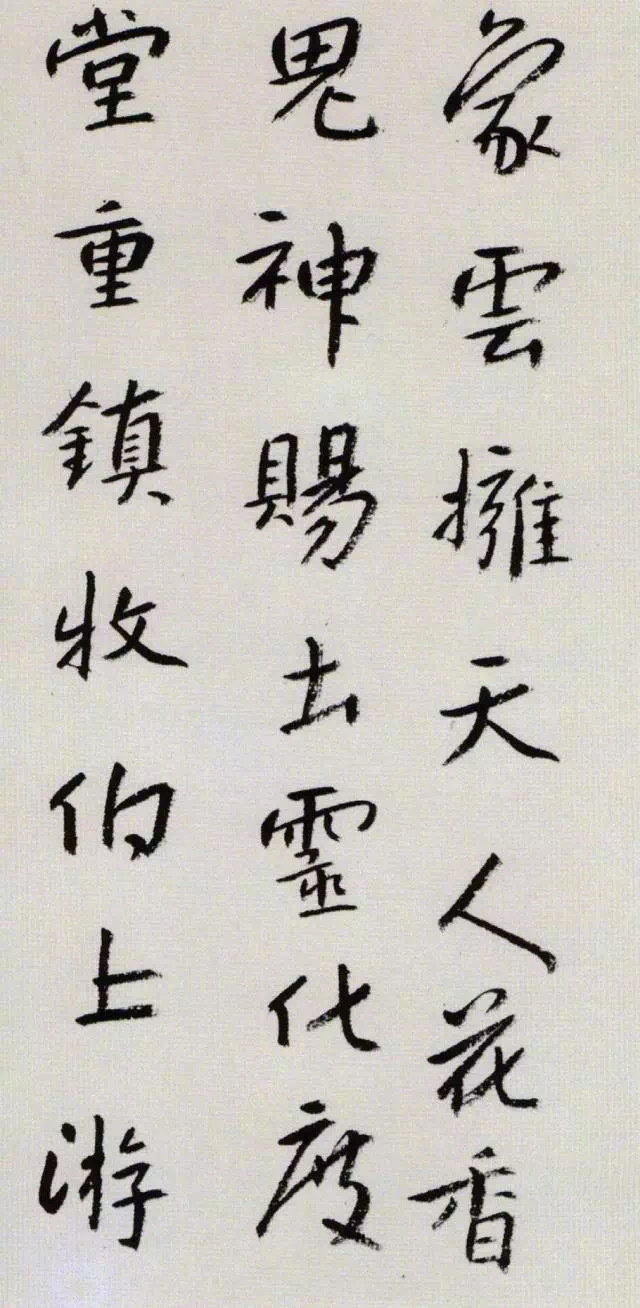 象雲擁天人花香
鬼神賜土靈化度
堂重鎮牧伯上游